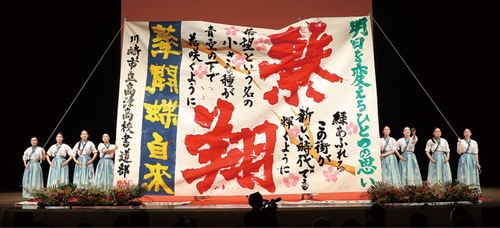 明日を変えるひとつの思い
繋
翔
緑あふれる
この街が
新しい時代でも
輝くように
希望という名の
小さな種が
青空の下で
花咲くように
華開蝶自来
川崎市立高津高校書道部